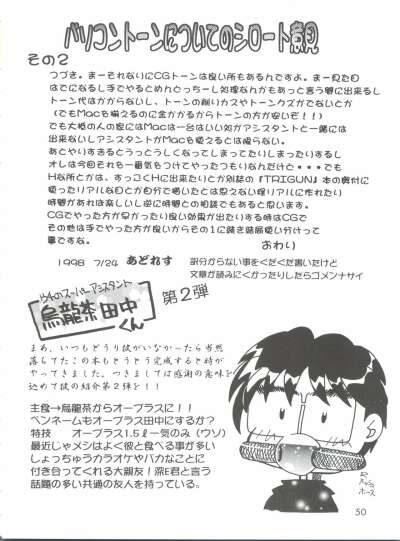 パソコントーンについてのシロート意見
その2
つづき。まーそれなりにCGトーンは良い所もあるんですよ。まー見た目
はでになるし手でやるとめんどっちーし処理なんかもあっと言う間に出来るし
トーン代はかからないし、トーンの削りカスやトーンクズがでないとか
(でもMacを揃えるのに金かかるからトーンの方が安いぞ!!)
でも大抵の人の家にはMacは一台はいい処がアシスタントと一緒には
出来ないしアシスタントがMacを使えるとは限らない。
あとやりすぎるとうっとうしくなってしまってたりしまったりするし
オレは今回それも一番気をつけてやったつもりなんだけど・・・でも
H な所とかは、すっごくHに出来たりとか別誌の『TRIGUN』本の教付に
使ったリアルな目とか自分で描いたとは思えない程リアルに作れたり
時間があれば楽しいし逆に時間との相談でもあると思います。
CGでやった方が早かったり良い効果が出たりする時はCGで
その他は手でやった方が良いからその1に戻る結局使い分けって
事ですな。
おわり
1998 7/24 あどれす
訳分からない事をくだくだ書いたけど
文章が読みにくかったりしたらゴメンナサイ
スーパーアシスタント
烏龍茶田中くん
第2弾
まあ、いつもどうり彼がいなかったら当然
落ちてたこの本もとうとう完成する時が
やってきました。つきましては感謝の意味を
込めて彼の紹介第2弾を!!
主食→烏龍茶からオープラスに!!
ペンネームもオープラス田中にするか?
特技 オープラス1.5ℓ一気のみ(ウソ)
最近じゃメシはよく彼と食べる事が多い
しょっちゅうカラオケやバカなことに
付き合ってくれる大親友!深E君と言う
話題の多い共通の友人を持っている。
50